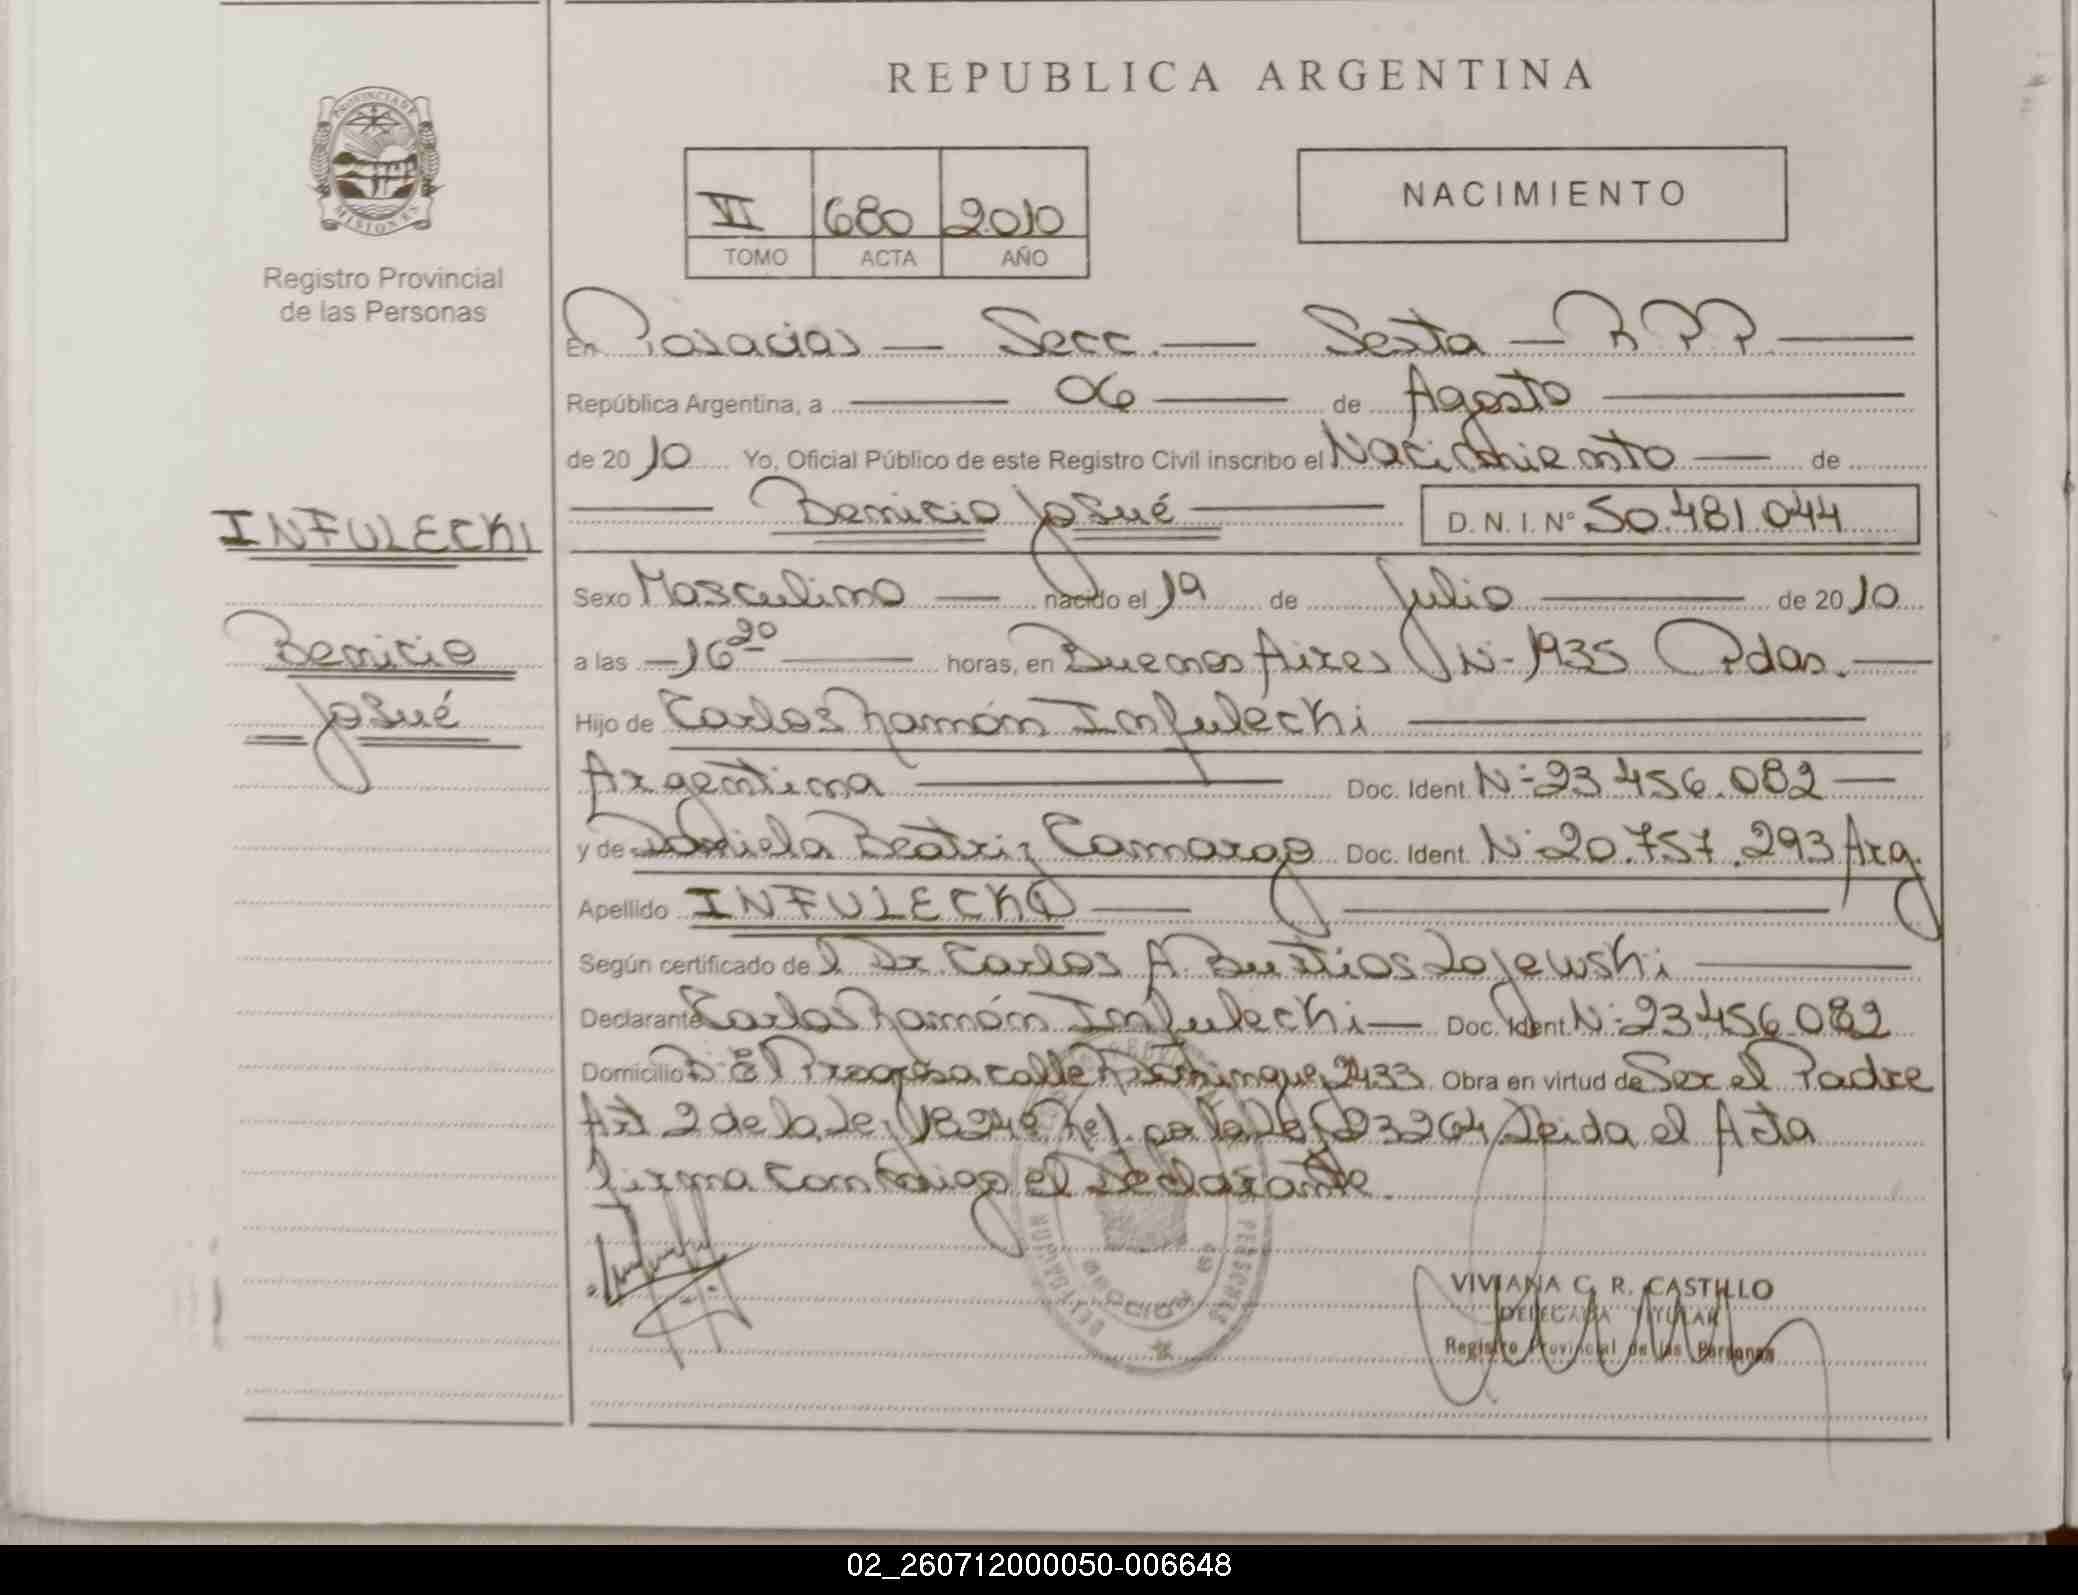 REPUBLICA ARGENTINA
PROVINCIA DE MISIONES
Registro Provincial
de las Personas
VI 680 2010
TOMO ACTA AÑO
NACIMIENTO
En Posadas — Secc. — Sexta — R P P —
República Argentina, a — 06 — de Agosto —
de 20 10 Yo, Oficial Público de este Registro Civil inscribo el Nacimiento — de
— Benicio Josué — D. N. I. Nº 50.481.044
INFULECKI
Benicio
Josué
Sexo Masculino — nacido el 19 de Julio — de 20 10
a las — 16 20 — horas, en Buenos Aires Nº 1935 Pdas. —
Hijo de Carlos Ramón Infulecki —
Argentina — Doc. Ident. Nº 23.456.082 —
y de Daniela Beatriz Camargo Doc. Ident. Nº 20.757.293 Arg.
Apellido INFULECKI —
Según certificado del Dr. Carlos A. Bustios Lojewski —
Declarante Carlos Ramón Infulecki — Doc. Ident. Nº 23.456.082
Domicilio Bº El Progreso calle 2433 Obra en virtud de Ser el Padre
Art 2 de la Ley 18248 Leida el Acta
firma conmigo el Declarante.
VIVIANA C. R. CASTILLO
DELEGADA TITULAR
Registro Provincial de las Personas
02_260712000050-006648